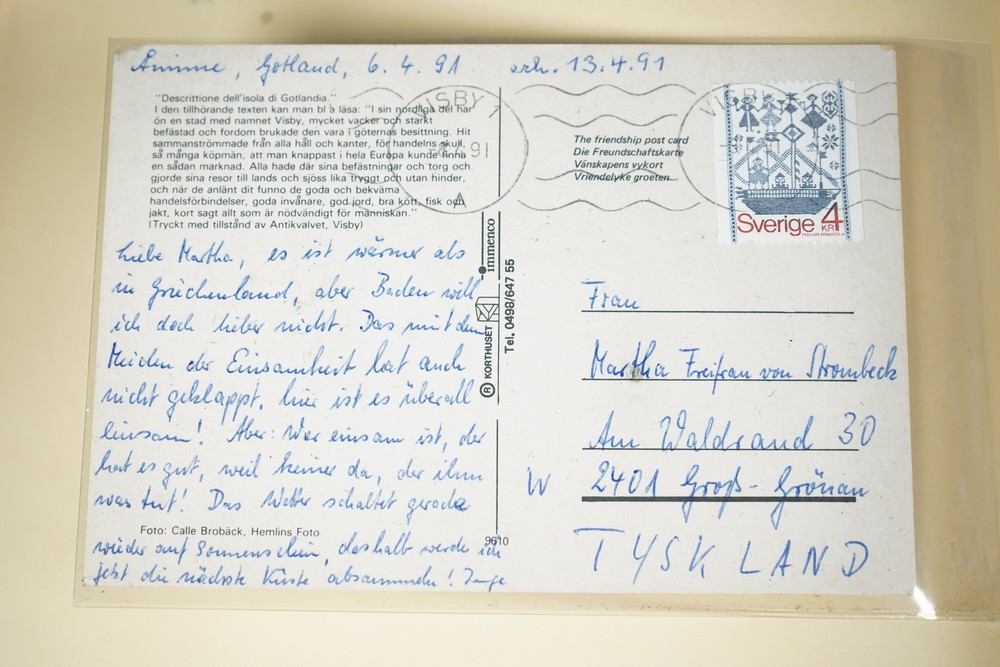 Ånimme, Gotland, 6.4.91 erh. 13.4.91
"Descrittione dell'isola di Gotlandia."
I den tillhörande texten kan man bl a läsa: "I sin nordliga del har
ön en stad med namnet Visby, mycket vacker och starkt
befästad och fordom brukade den vara i göternas besittning. Hit
sammanströmmade från alla håll och kanter, för handelns skull,
så många köpmän, att man knappast i hela Europa kunde finna
en sådan marknad. Alla hade där sina befästningar och torg och
gjorde sina resor till lands och sjöss lika tryggt och utan hinder,
och när de anlänt dit funno de goda och bekväma
handelsförbindelser, goda invånare, god jord, bra kött, fisk och
jakt, kort sagt allt som är nödvändigt för människan."
(Tryckt med tillstånd av Antikvalvet, Visby)
Liebe Martha, es ist wärmer als
in Griechenland, aber Baden will
ich doch lieber nicht. Das mit dem
Meiden der Einsamkeit hat auch
nicht geklappt. Hier ist es überall
einsam! Aber: Wer einsam ist, der
hat es gut, weil keiner da, der ihm
was tut! Das Wetter schaltet gerade
Foto: Calle Brobäck, Hemlins Foto
wieder auf Sonnenschein, deshalb werde ich
jetzt die nächste Küste absammeln! Inge
9610
® KORTHUSET immenco
Tel. 0498/647 55
VISBY 1
91
A
VISBY
The friendship post card
Die Freundschaftskarte
Vänskapens vykort
Vriendelyke groeten
Sverige 4
KR
Frau
Martha Freifrau von Strombeck
Am Waldrand 30
W 2401 Groß-Grönau
TYSKLAND